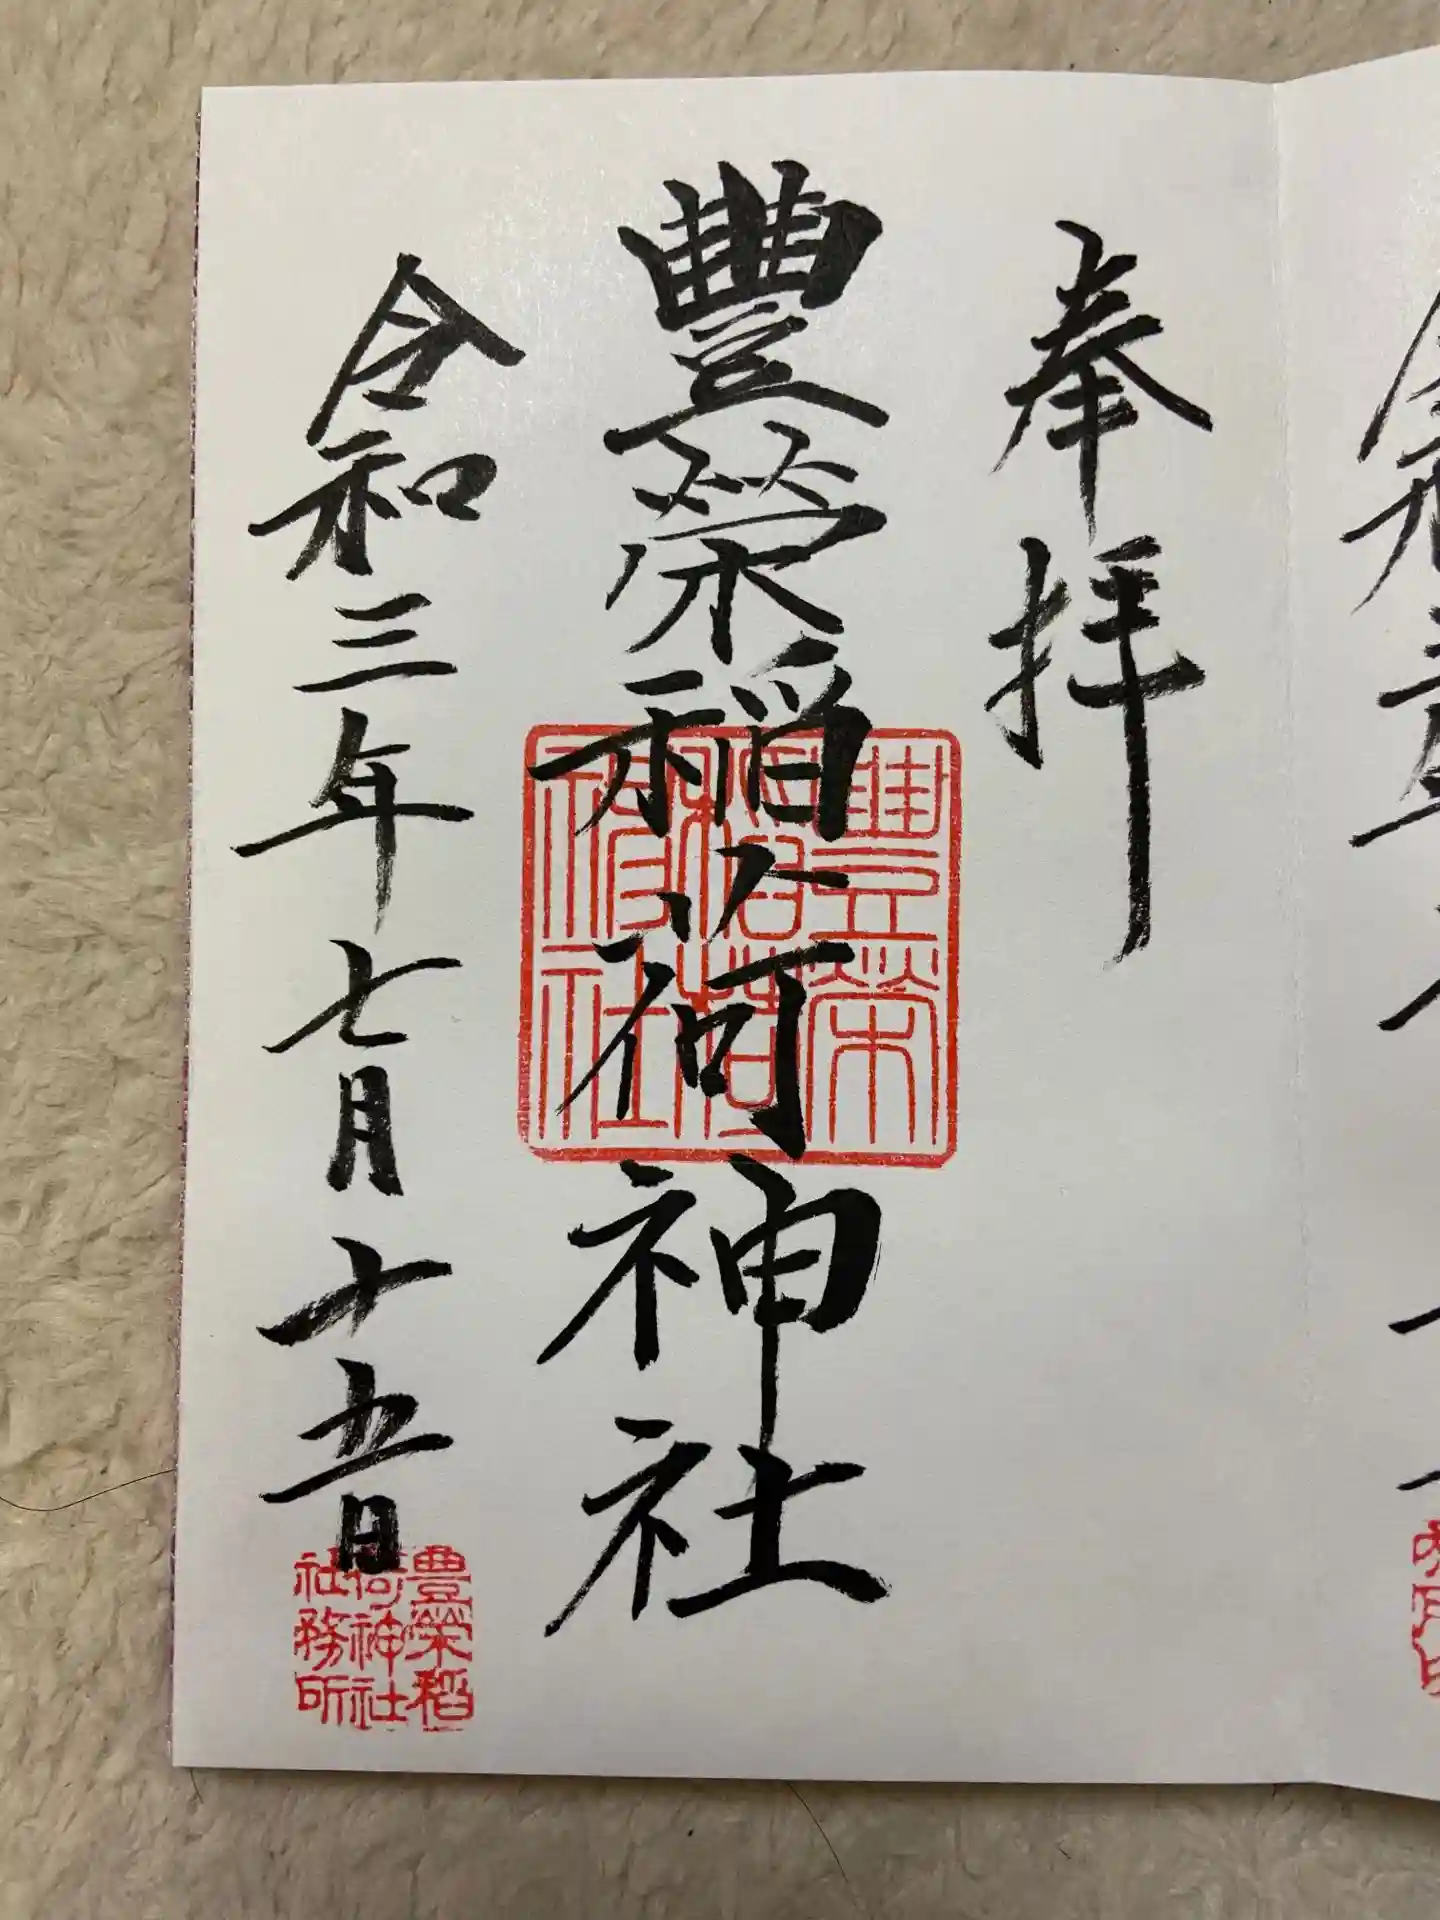 奉拝
豊榮稲荷神社
令和三年七月十五日
豊榮
稲荷
神社
豊榮稲
荷神社
社務所